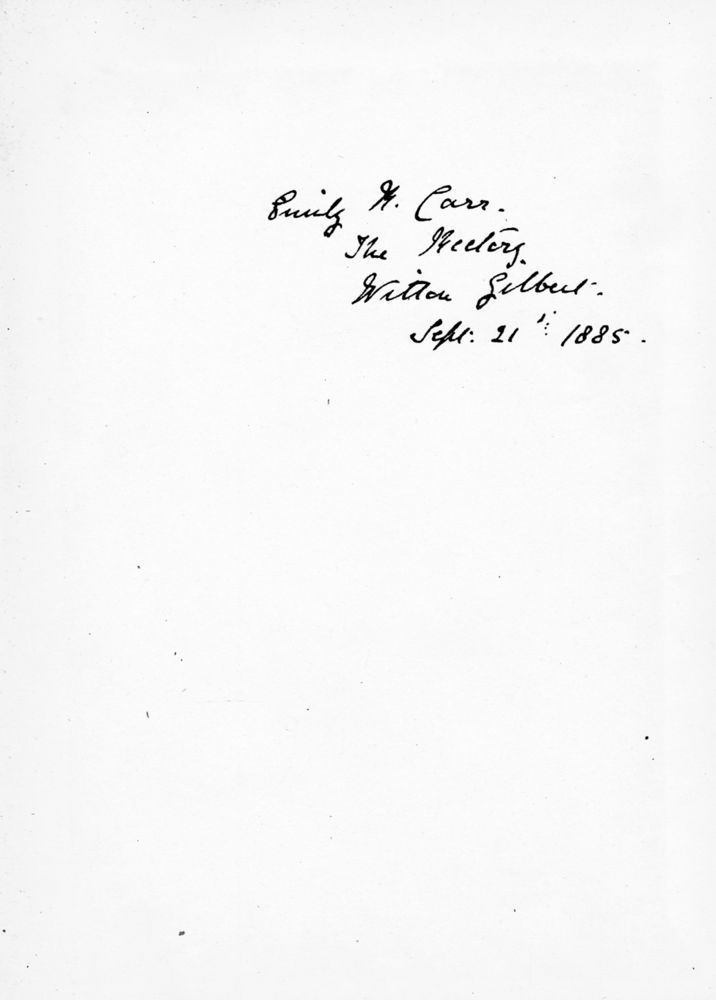 Emily H. Carr.
The Rectory.
Witton Gilbert.
Sept: 21st 1885.